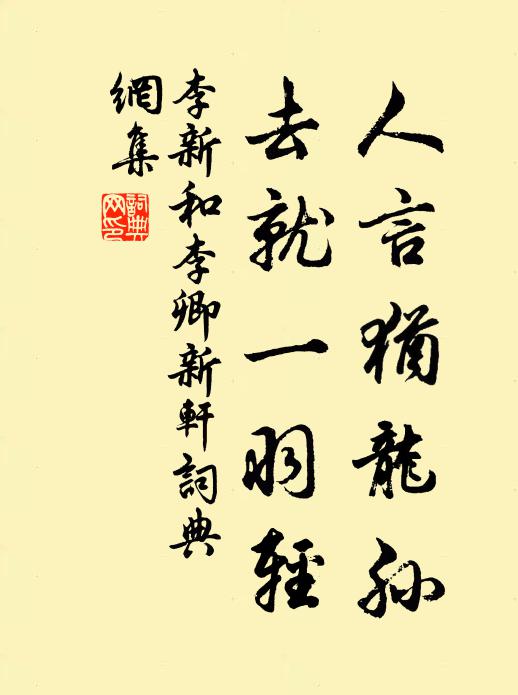 人言猶龍孫
去就一羽輕
李新和李卿新軒詞典
網集
詞典
网印